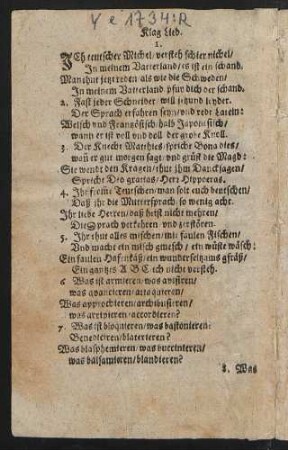 Y e 1734:R
Klag Lied.
1.
ICh teutscher Michel/ versteh schier nichel/
In meinem Vatterland/ es ist ein schand.
Man thut jetzt reden als wie die Schweden/
In meinem Vatterland pfui dich der schand.
2. Fast jeder Schneider will jetzund leyder
Der Sprach erfahren seyn/ und redt Latein:
Welsch und Frantzösisch/ halb Japonesisch/
wann er ist voll und doll der grobe Knoll.
3. Der Knecht Matthies/ spricht Bona dies/
wañ er gut morgen sagt/ und grüst die Magd:
Sie wendt den Kragen/ thut ihm Dancksagen/
Spricht Deo gratias/ Herr Hippocras.
4. Ihr from̃e Teutschen/ man solt euch beutschen/
Daß ihr die Muttersprach so wenig acht.
Ihr liebe Herren/ daß heist nicht mehren/
Die Sprach verkehren und zerstören.
5. Ihr thut alles mischen/ mit faulen Fischen/
Und macht ein misch gmesch/ ein wüste wäsch:
Ein faulen Haffenkäß/ ein wunderseltzams gfräß/
Ein gantzes A B C ich nicht versteh.
6. Was ist armieren/ was avisiren/
was avanciren/ attaquieren/
Was approchieren/ archibusiren/
was arrivieren/ accordieren?
7. Was ist bloquieren/ was bastonieren:
Benedicieren/ blaterieren?
Was blasphemieren/ was bucinieren/
was balsamieren/ blandieren?
8. Was